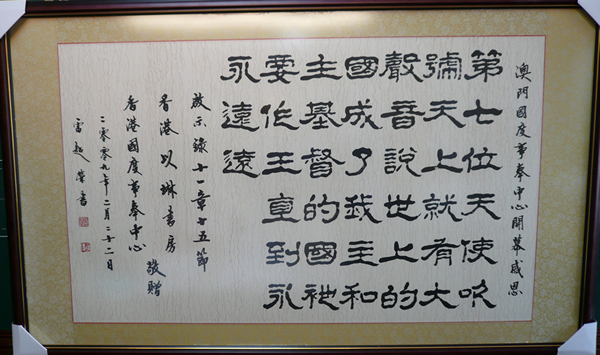 澳門國度事奉中心開幕感恩
第七位天使吹
號天上就有大
聲音說世上的
國成了我主和
主基督的國祂
要作王直到永
永遠遠
啟示錄十一章十五節
香港以琳書房
香港國度事奉中心
敬贈
二零零九年二月二十二日
雷超榮書